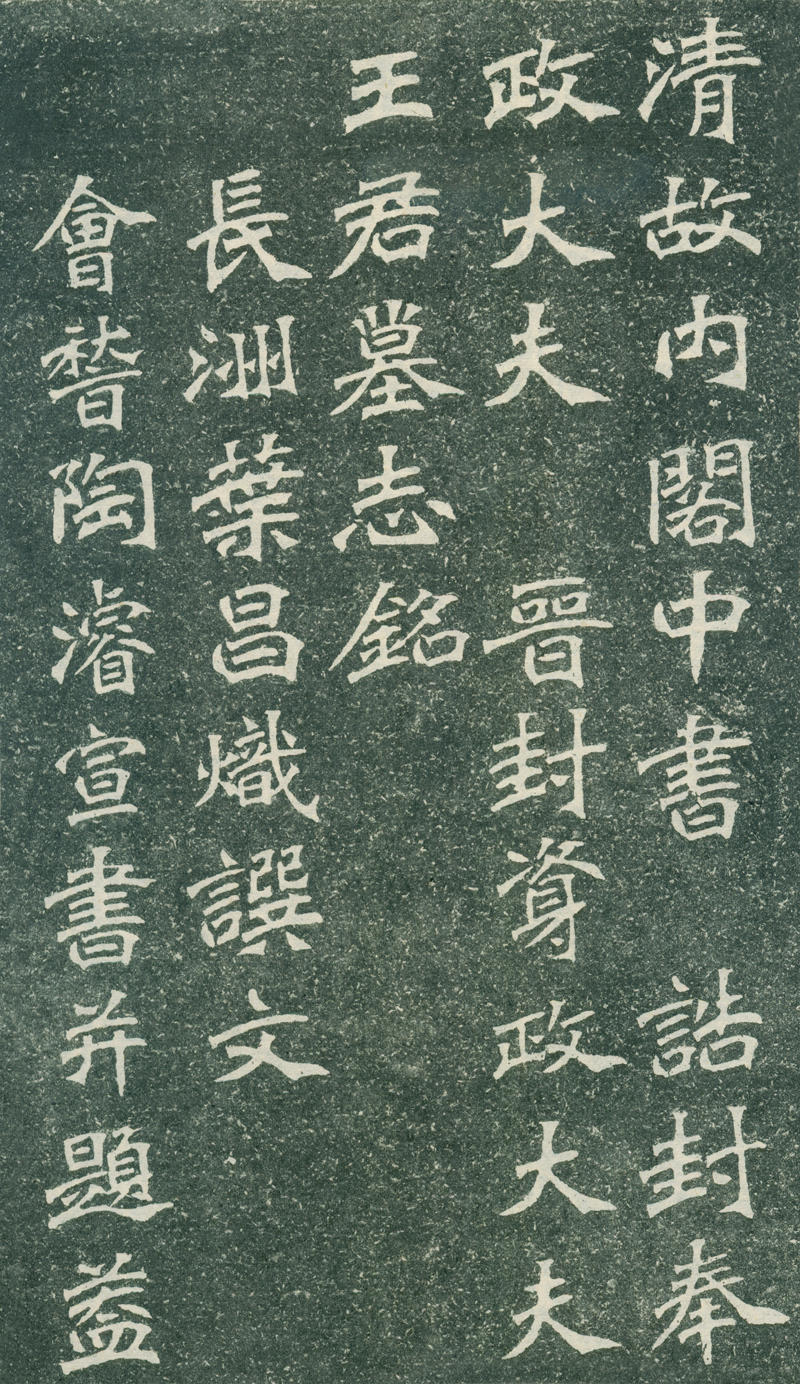 清故内閣中書 誥封奉
政大夫 晉封資政大夫
王君墓志銘
長洲葉昌熾譔文
會稽陶濬宣書并題蓋